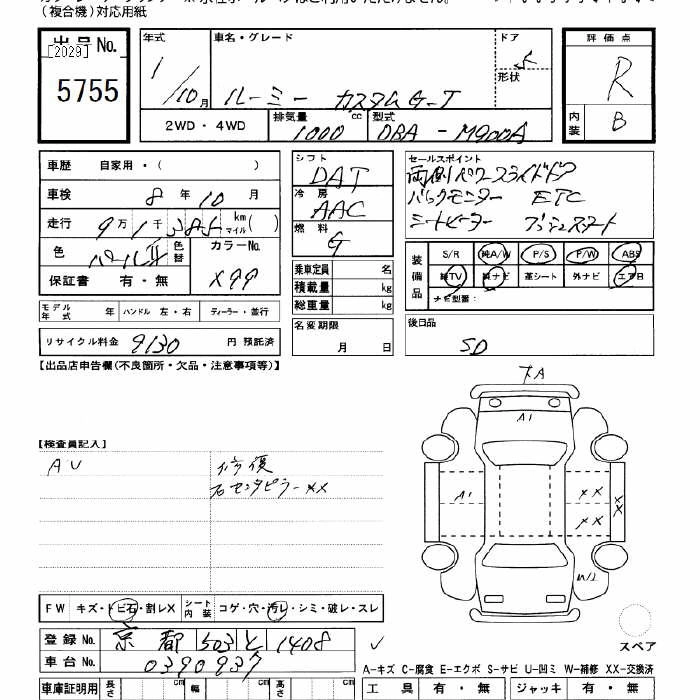 （複合機）対応用紙
出品No. [2029] 5755
年式 1/10月
車名・グレード ルーミー カスタムG-T
ドア 5
形状
評価点 R
内装 B
2WD・4WD
排気量 1000 cc
型式 DBA-M900A
車歴 自家用・( )
車検 8年10月
走行 9万1千385 km マイル( )
色 パールII 色替
カラーNo. X99
保証書 有・無
モデル年式 年 ハンドル 左・右 ディーラー・並行
リサイクル料金 9130 円 預託済
シフト DAT
冷房 AAC
燃料 G
乗車定員 名
積載量 kg
総重量 kg
名変期限 月 日
セールスポイント
両側パワースライドドア
バックモニター ETC
シートヒーター プッシュスタート
装備品 S/R 純A/W P/S P/W ABS
純TV 純ナビ 革シート 外ナビ エアB
ナビ型番:
後日品
SD
【出品店申告欄(不良箇所・欠品・注意事項等)】
【検査員記入】
AU 修復
右センタピラーXX
下A
A1
A1
XX
XX
XX
W2
FW キズ・トビ石・割レX
シート内装 コゲ・穴・汚レ・シミ・破レ・スレ
登録No. 京都 503 と 1408
車台No. 0390937
車庫証明用 長さ cm 幅 cm 高さ cm
スペア
A-キズ C-腐食 E-エクボ S-サビ U-凹ミ W-補修 XX-交換済
工具 有・無 ジャッキ 有・無